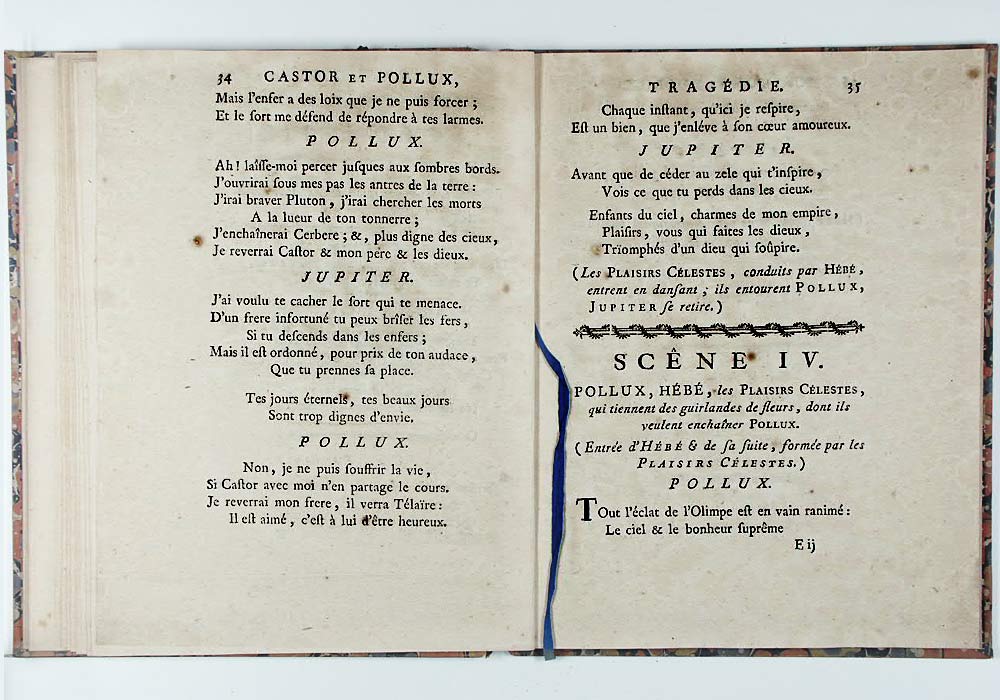 34 CASTOR ET POLLUX,
Mais l'enfer a des loix que je ne puis forcer ;
Et le ſort me défend de répondre à tes larmes.
POLLUX.
Ah ! laîſſe-moi percer juſques aux ſombres bords.
J'ouvrirai ſous mes pas les antres de la terre :
J'irai braver Pluton, j'irai chercher les morts
A la lueur de ton tonnerre ;
J'enchaînerai Cerbere ; &, plus digne des cieux,
Je reverrai Caſtor & mon pére & les dieux.
JUPITER.
J'ai voulu te cacher le ſort qui te menace.
D'un frere infortuné tu peux brîſer les fers,
Si tu deſcends dans les enfers ;
Mais il eſt ordonné, pour prix de ton audace,
Que tu prennes ſa place.
Tes jours éternels, tes beaux jours
Sont trop dignes d'envie.
POLLUX.
Non, je ne puis ſouffrir la vie,
Si Caſtor avec moi n'en partage le cours.
Je reverrai mon frere, il verra Télaïre :
Il eſt aimé, c'eſt à lui d'être heureux.
TRAGÉDIE. 35
Chaque inſtant, qu'ici je reſpire,
Eſt un bien, que j'enléve à ſon cœur amoureux.
JUPITER.
Avant que de céder au zele qui t'inſpire,
Vois ce que tu perds dans les cieux.
Enfants du ciel, charmes de mon empire,
Plaiſirs, vous qui faites les dieux,
Trïomphés d'un dieu qui ſoûpire.
(Les PLAISIRS CÉLESTES, conduits par HÉBÉ,
entrent en danſant ; ils entourent POLLUX,
JUPITER ſe retire.)
SCÊNE IV.
POLLUX, HÉBÉ, les PLAISIRS CÉLESTES,
qui tiennent des guirlandes de fleurs, dont ils
veulent enchaîner POLLUX.
(Entrée d'HÉBÉ & de ſa ſuite, formée par les
PLAISIRS CÉLESTES.)
POLLUX.
TOut l'éclat de l'Olimpe eſt en vain ranimé :
Le ciel & le bonheur ſuprême
E ij